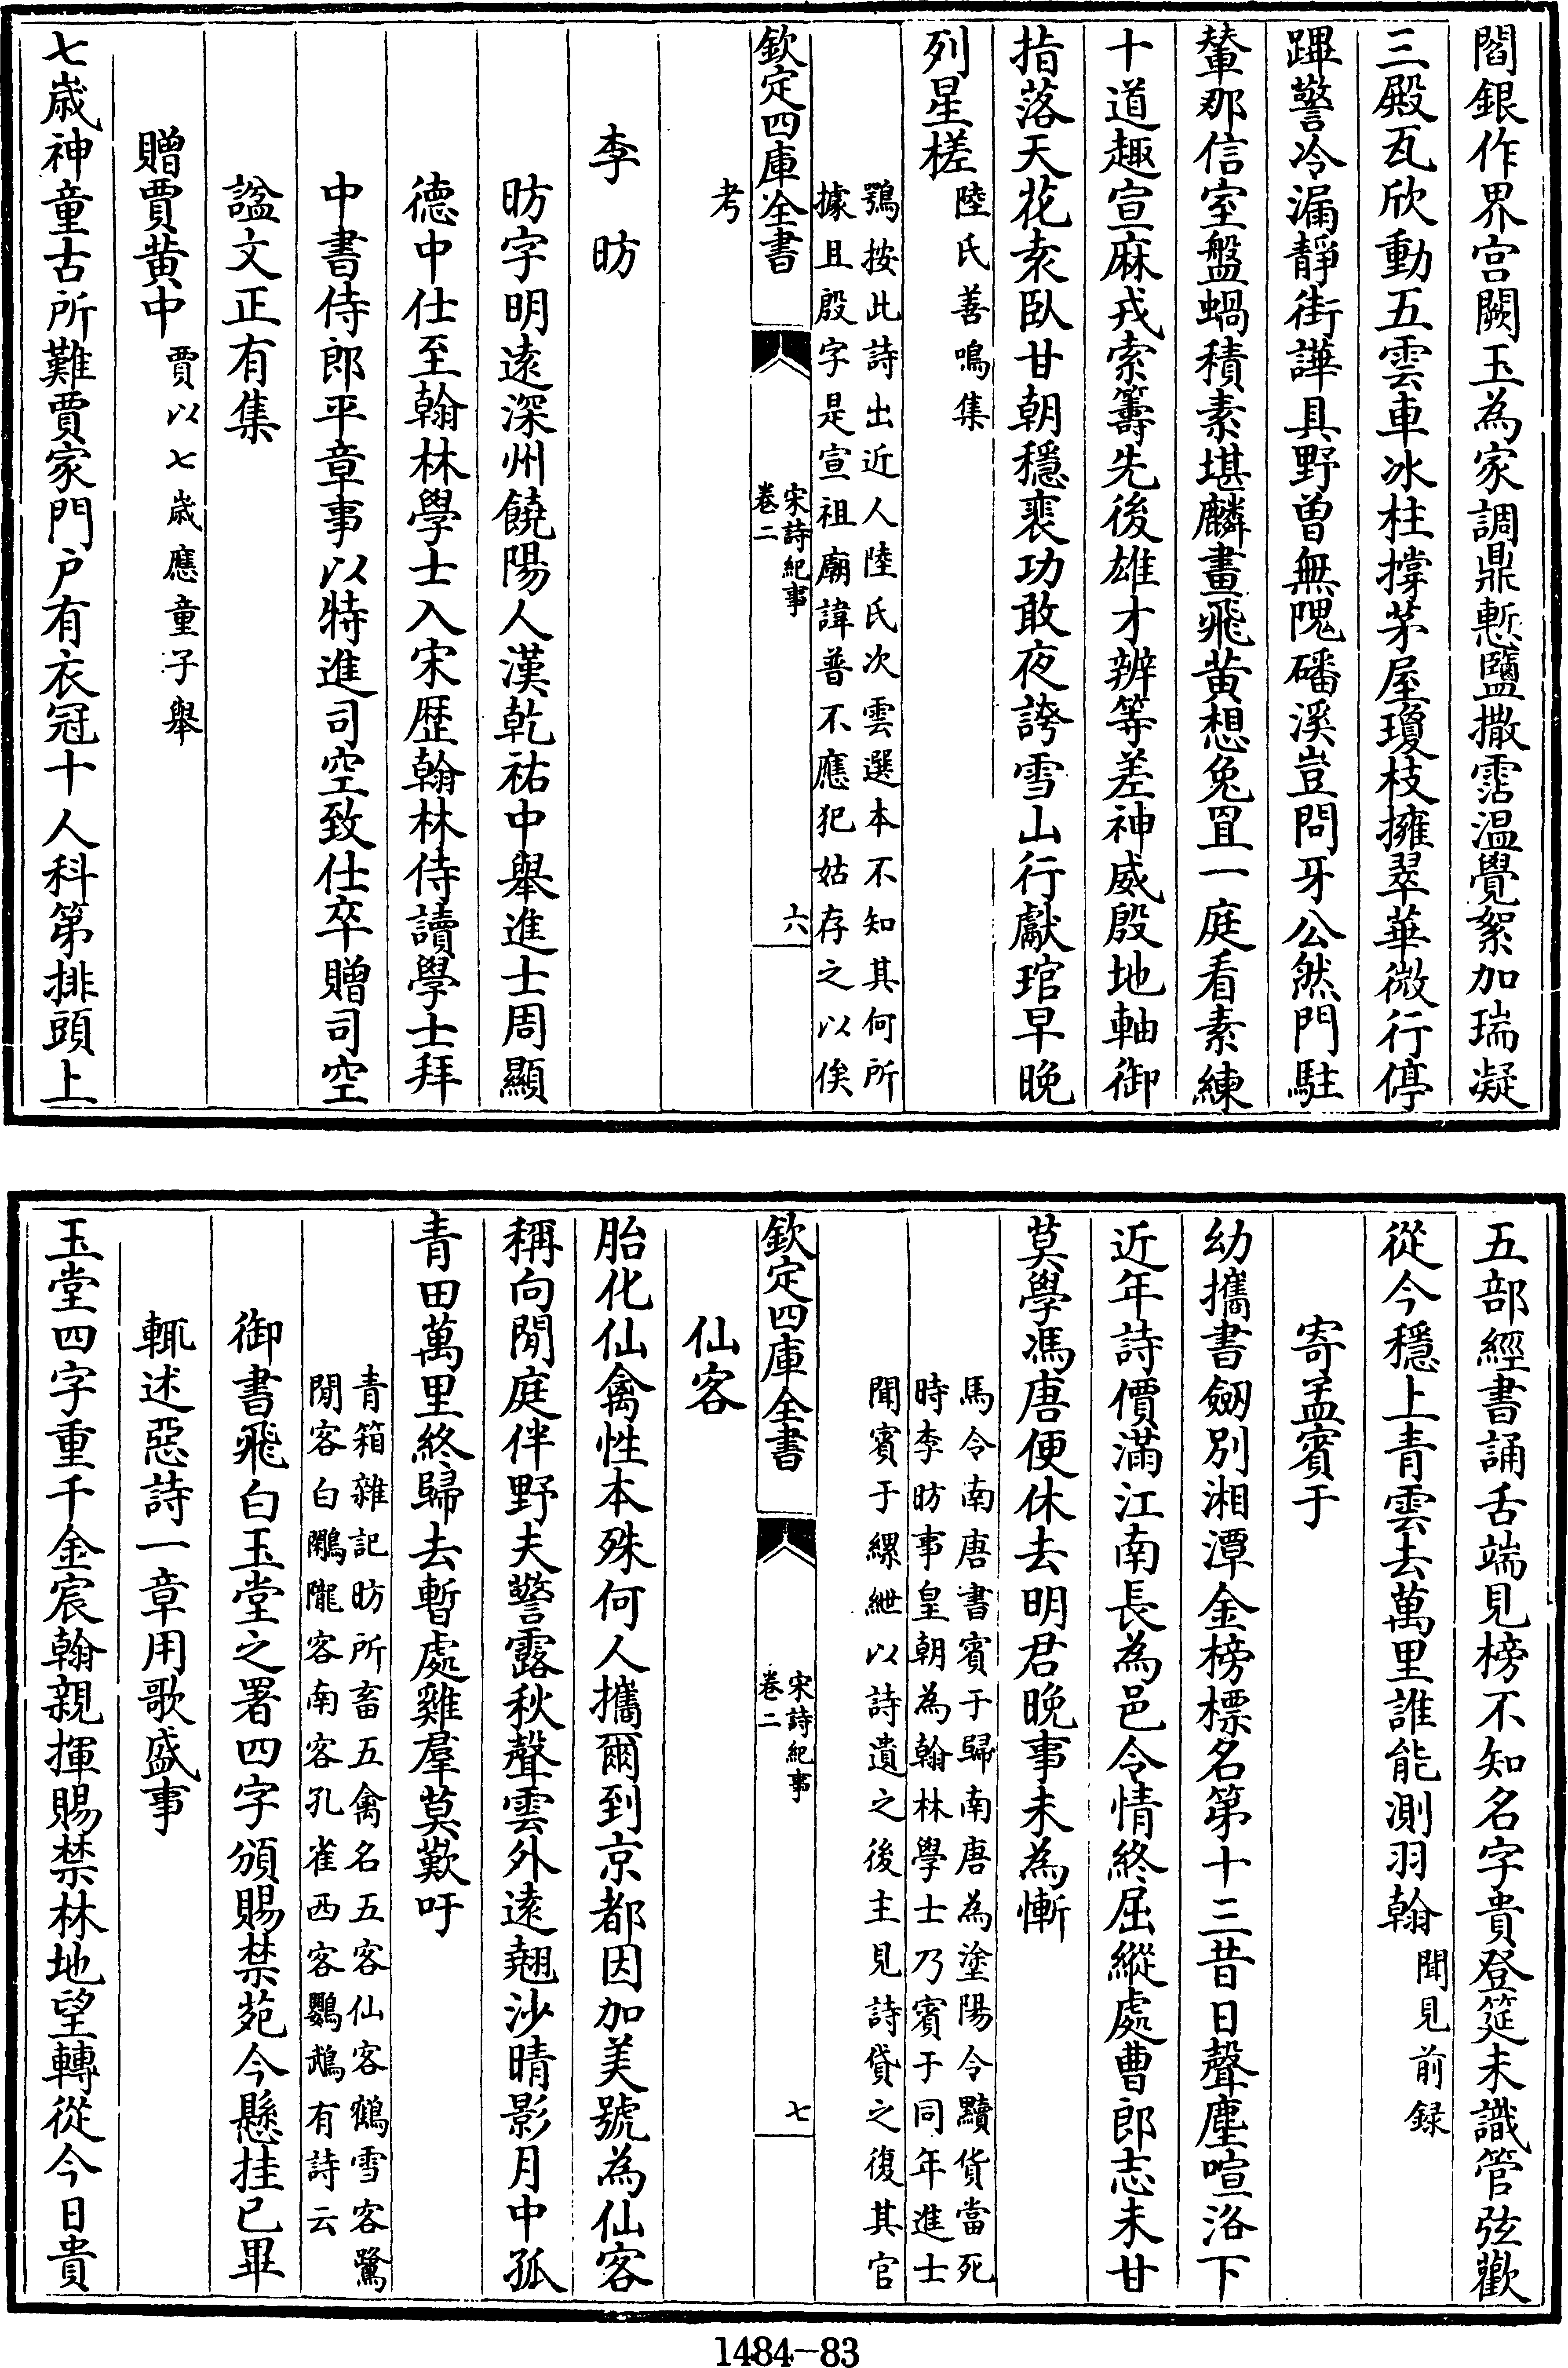 閣銀作界宫闕玉為家調鼎慙鹽撒霑温覺絮加瑞凝
三殿瓦欣動五雲車冰柱撐茅屋瓊枝擁翠華微行停
蹕警冷漏靜街譁具野曽無隗磻溪豈問牙公然門駐
輦那信室盤蝸積素堪麟畫飛黄想兔罝一庭看素練
十道趣宣麻戎索籌先後雄才辨等差神威殷地軸御
指落天花袁臥甘朝穩裴功敢夜誇雪山行獻琯早晚
列星槎
陸氏善鳴集
鶚按此詩出近人陸氏次雲選本不知其何所
據且殷字是宣祖廟諱普不應犯姑存之以俟
考
欽定四庫全書
宋詩紀事
卷二
六
李昉
昉字明遠深州饒陽人漢乾祐中舉進士周顯
德中仕至翰林學士入宋歴翰林侍讀學士拜
中書侍郎平章事以特進司空致仕卒贈司空
諡文正有集
贈賈黄中
賈以七歲應童子舉
七歲神童古所難賈家門户有衣冠十人科第排頭上
五部經書誦舌端見榜不知名字貴登筵未識管弦歡
從今穩上青雲去萬里誰能測羽翰
聞見前録
寄孟賓于
幼攜書劒別湘潭金榜標名第十三昔日聲塵喧洛下
近年詩價滿江南長為邑令情終屈縱處曹郎志未甘
莫學馮唐便休去明君晚事未為慚
馬令南唐書賓于歸南唐為塗陽令黷貨當死
時李昉事皇朝為翰林學士乃賓于同年進士
聞賓于縲紲以詩遺之後主見詩貸之復其官
欽定四庫全書
宋詩紀事
卷二
七
仙客
胎化仙禽性本殊何人攜爾到京都因加美號為仙客
稱向閒庭伴野夫警露秋聲雲外遠翹沙晴影月中孤
青田萬里終歸去暫處雞羣莫歎吁
青箱雜記昉所畜五禽名五客仙客鶴雪客鷺
閒客白鷴隴客南客孔雀西客鸚鵡有詩云
御書飛白玉堂之署四字頒賜禁苑今懸挂已畢
輒述惡詩一章用歌盛事
玉堂四字重千金宸翰親揮賜禁林地望轉從今日貴
1484-83